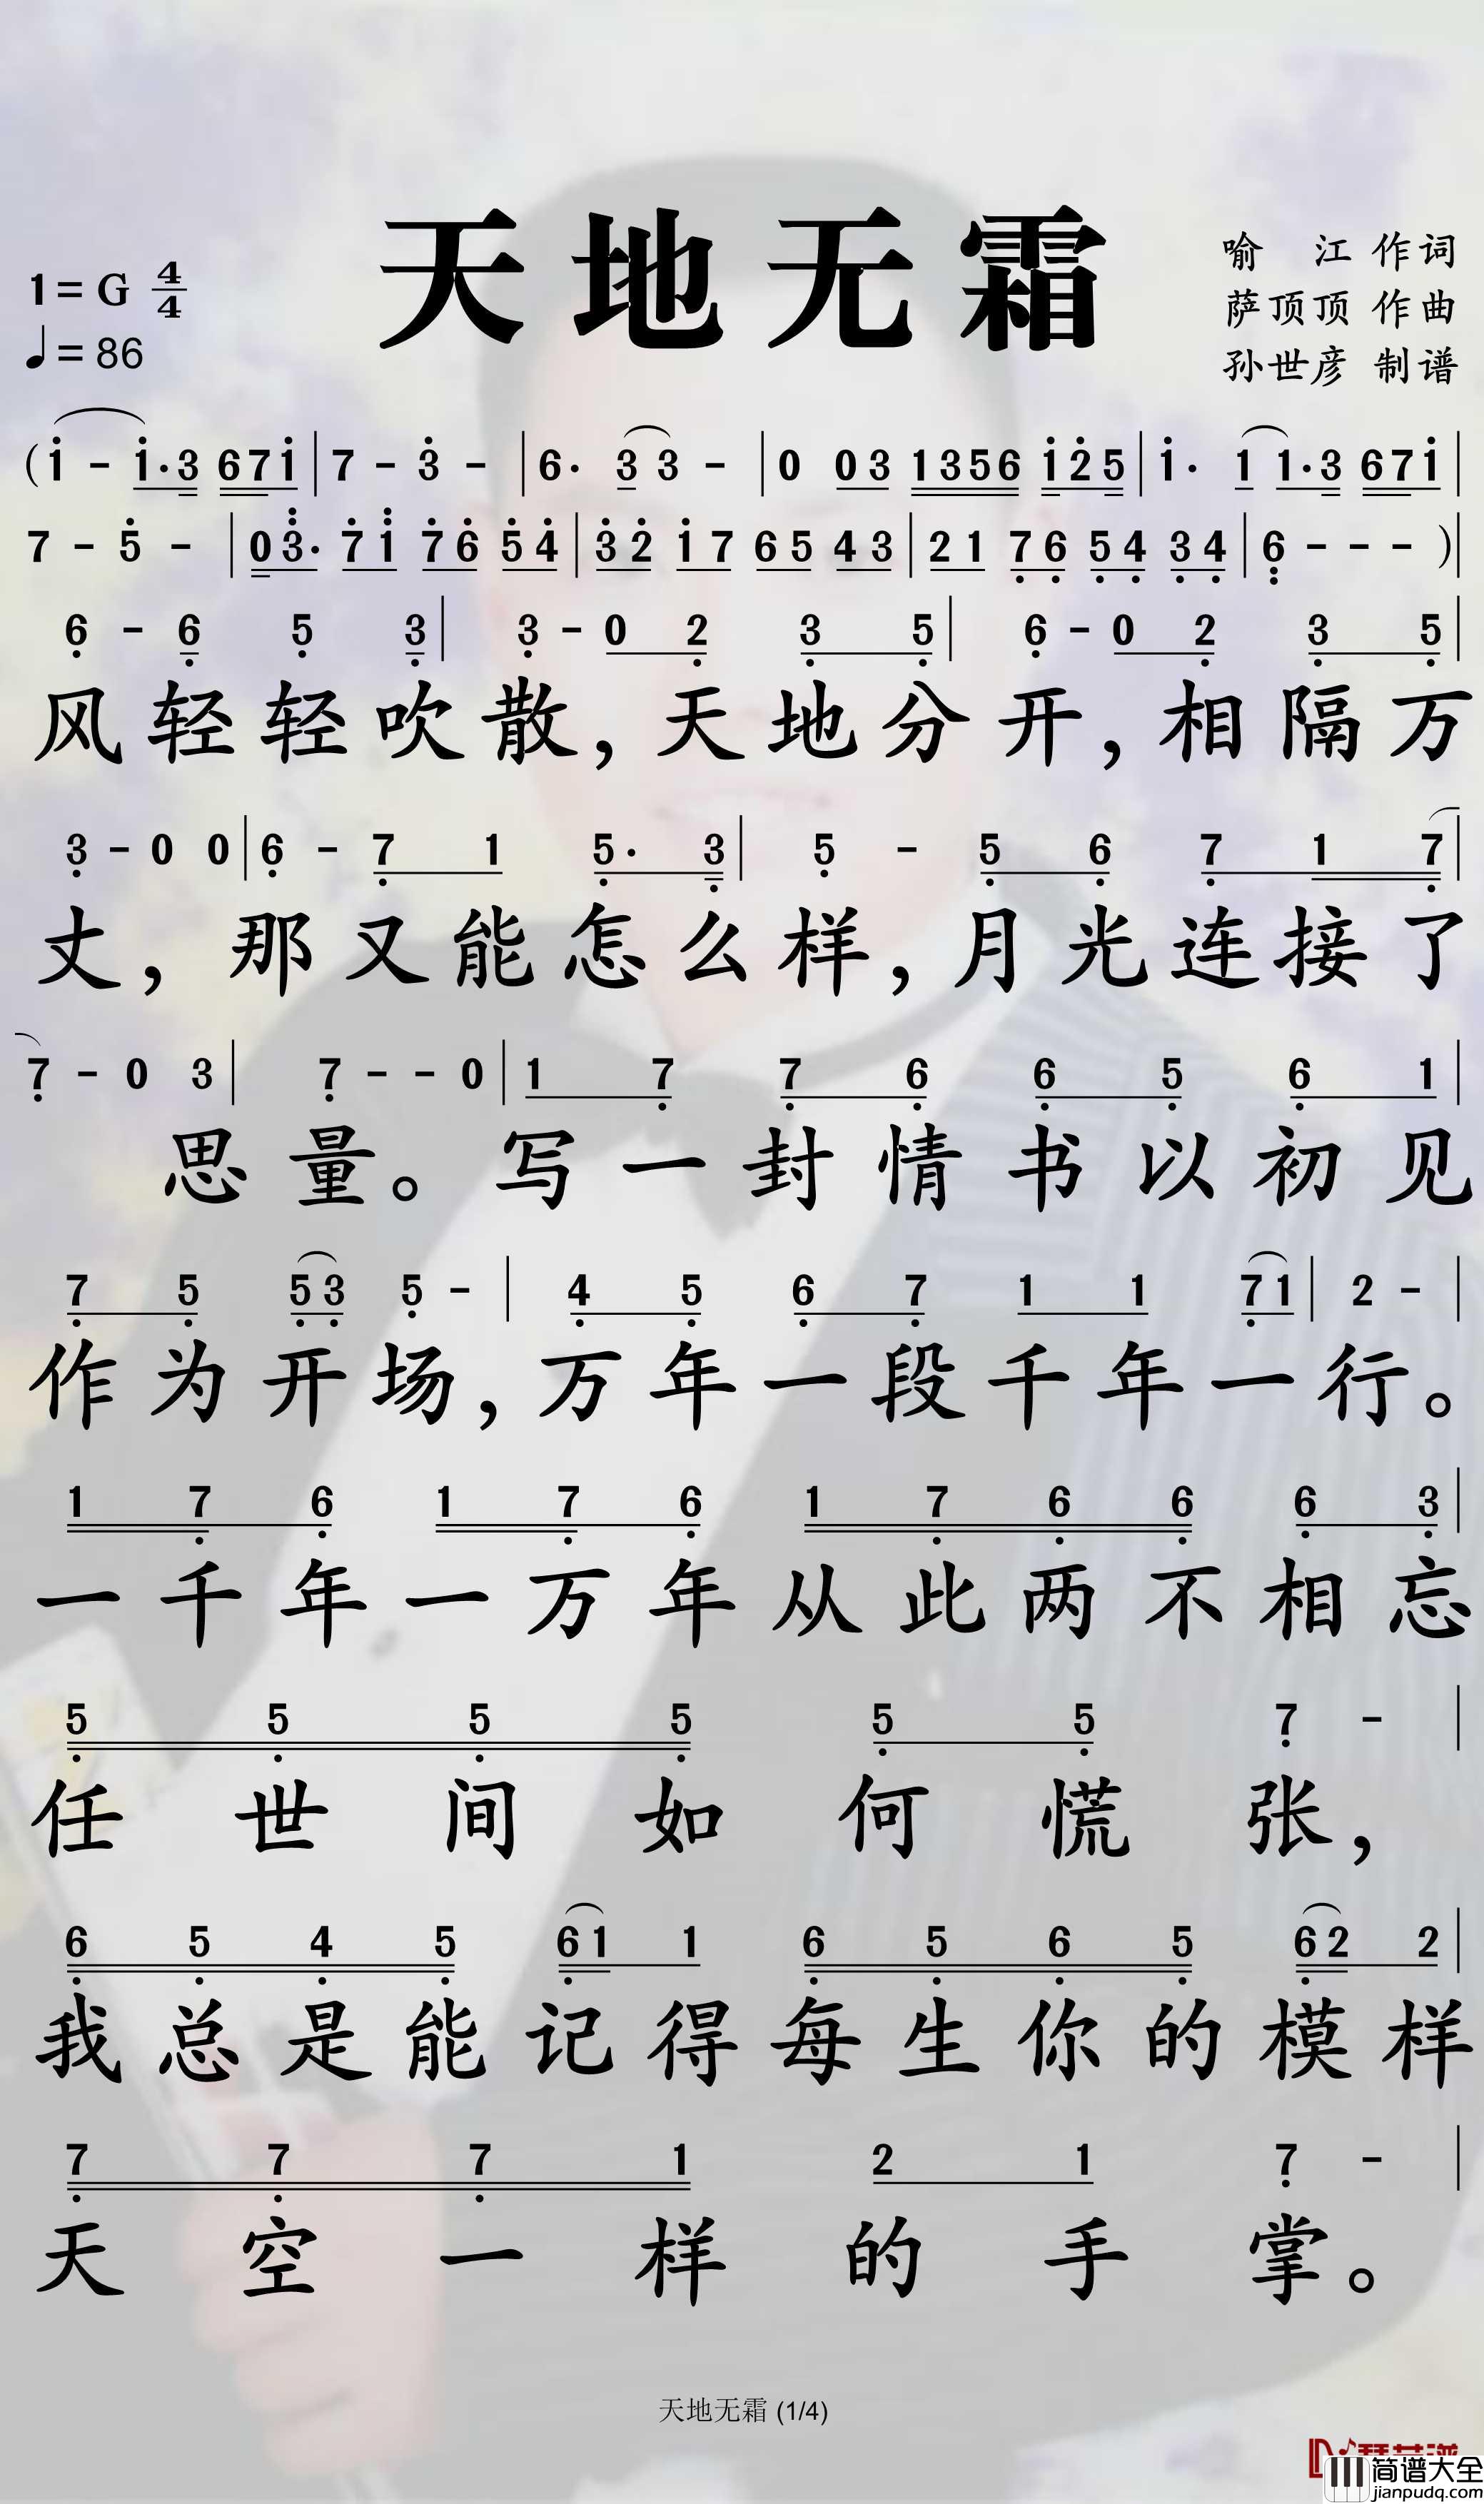 天地无霜
喻 江 作词
萨顶顶 作曲
孙世彦 制谱
1=G 4/4
♩=86
(i - i·3 67i | 7 - 3 - | 6· 3 3 - | 0 03 1356 i25 | i· 1 1·3 67i |
7 - 5 - | 03· 7i 76 54 | 32 i7 65 43 | 21 76 54 34 | 6 - - - )|
6 - 6 5 3 | 3 - 0 2 3 5 | 6 - 0 2 3 5 |
风轻轻吹散,天地分开,相隔万
3 - 0 0 | 6 - 7 1 5· 3 | 5 - 5 6 7 1 7 |
丈,那又能怎么样,月光连接了
7 - 0 3 | 7 - - 0 | 1 7 7 6 6 5 6 1 |
思量。写一封情书以初见
7 5 53 5 - | 4 5 6 7 1 1 71 | 2 - |
作为开场,万年一段千年一行。
1 7 6 1 7 6 1 7 6 6 6 3 |
一千年一万年从此两不相忘
5 5 5 5 5 5 7 - |
任世间如何慌张,
6 5 4 5 61 1 6 5 6 5 62 2 |
我总是能记得每生你的模样
7 7 7 1 2 1 7 - |
天空一样的手掌。
天地无霜 (1/4)
简谱大全
jianpudq.com